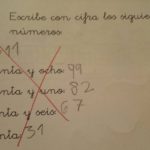 Escribe con cifra los siguie
números:
11
nta y ocho: 99
nta y uno: 82
nta y seis: 67
nta: 31